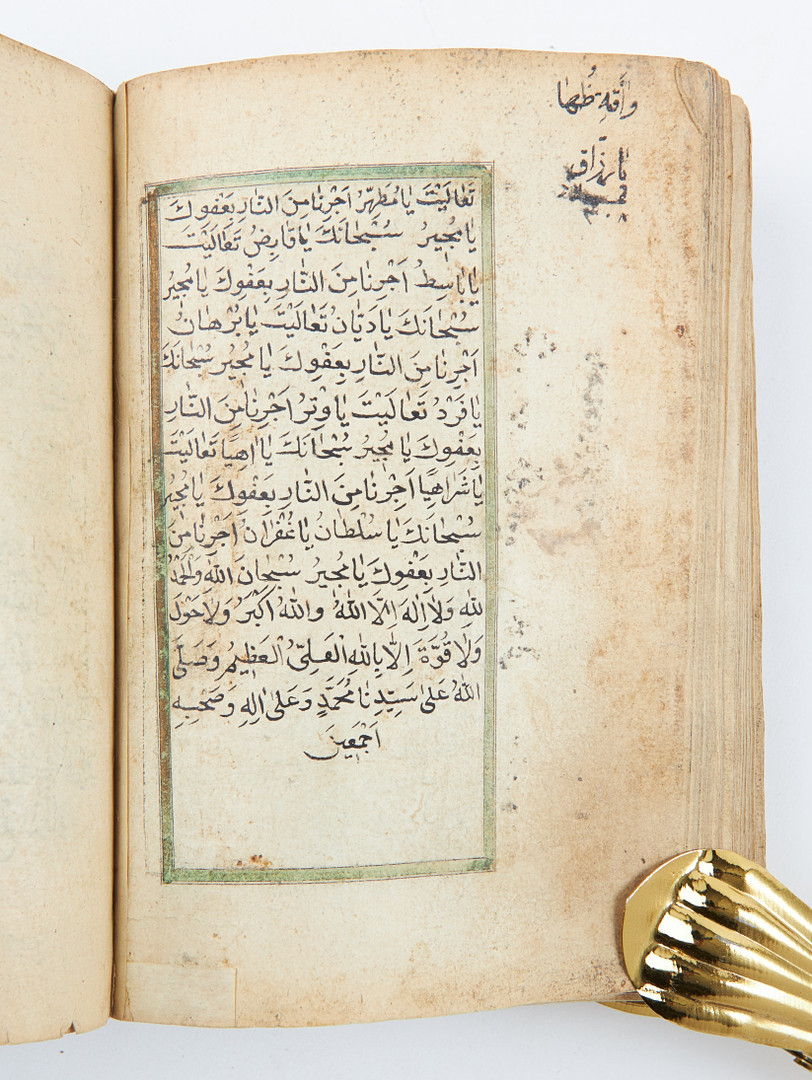 تَعَالَيْتَ يَا مُطَهِّرُ اَجِرْنَا مِنَ النَّارِ بِعَفْوِكَ
يَا مُجِيرُ سُبْحَانَكَ يَا قَابِضُ تَعَالَيْتَ
يَا بَاسِطُ اَجِرْنَا مِنَ النَّارِ بِعَفْوِكَ يَا مُجِيرُ
سُبْحَانَكَ يَا دَيَّانُ تَعَالَيْتَ يَا بُرْهَانُ
اَجِرْنَا مِنَ النَّارِ بِعَفْوِكَ يَا مُجِيرُ سُبْحَانَكَ
يَا فَرْدُ تَعَالَيْتَ يَا وِتْرُ اَجِرْنَا مِنَ النَّارِ
بِعَفْوِكَ يَا مُجِيرُ سُبْحَانَكَ يَا اَهِيًا تَعَالَيْتَ
يَا شَرَاهِيًا اَجِرْنَا مِنَ النَّارِ بِعَفْوِكَ يَا مُجِيرُ
سُبْحَانَكَ يَا سُلْطَانُ يَا غُفْرَانُ اَجِرْنَا مِنَ
النَّارِ بِعَفْوِكَ يَا مُجِيرُ سُبْحَانَ اللهِ وَالْحَمْدُ
لِلهِ وَلَا اِلٰهَ اِلَّا اللهُ وَاللهُ اَكْبَرُ وَلَا حَوْلَ
وَلَا قُوَّةَ اِلَّا بِاللهِ الْعَلِيِّ الْعَظِيمِ وَصَلَّى
اللهُ عَلٰى سَيِّدِنَا مُحَمَّدٍ وَعَلٰى اٰلِهِ وَصَحْبِهِ
اَجْمَعِينَ
يا رزاق